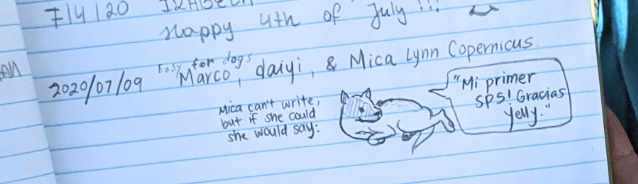 7/4/20
Happy 4th of July!!!
2020/07/09 Easy for dogs
Marco, daiyi, & Mica Lynn Copernicus
Mica can't write,
but if she could
she would say:
"Mi primer
SPS! Gracias
yelly."